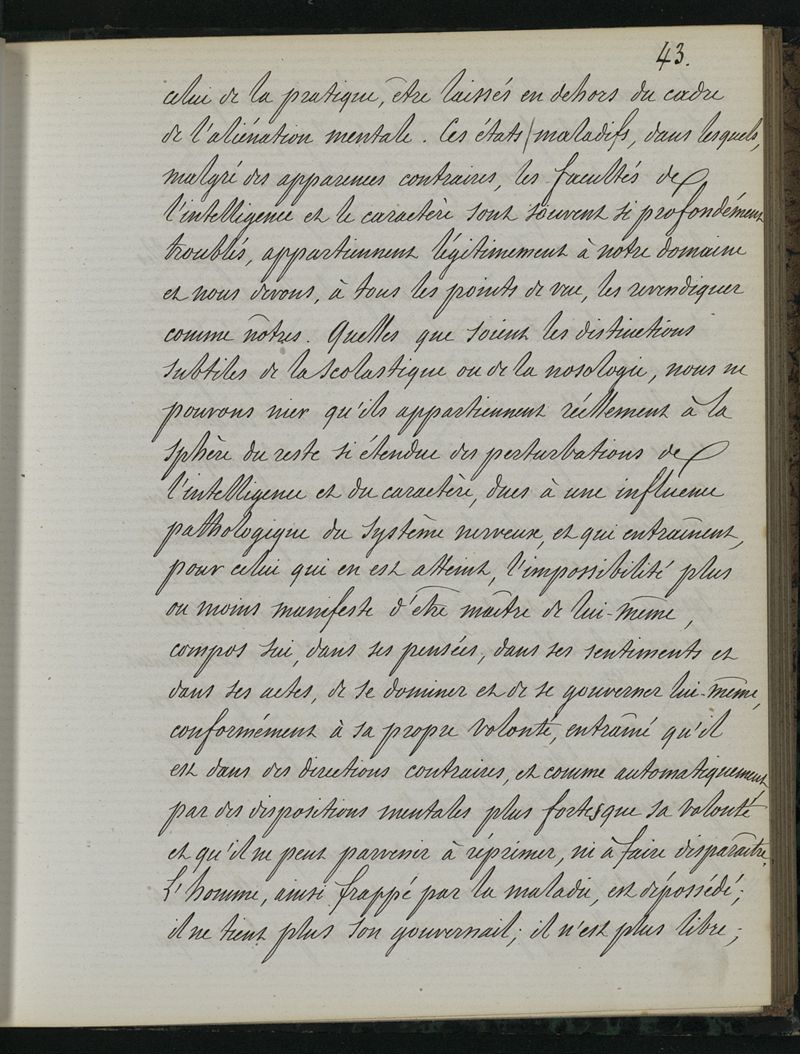 43.
celui de la pratique, être laissés en dehors du cadre
de l'aliénation mentale. Ces états maladifs, dans lesquels,
malgré des apparences contraires, les facultés de
l'intelligence et le caractère sont souvent si profondément
troublés, appartiennent légitimement à notre domaine
et nous devons, à tous les points de vue, les revendiquer
comme nôtres. Quelles que soient les distinctions
subtiles de la scolastique ou de la nosologie, nous ne
pouvons nier qu'ils appartiennent réellement à la
sphère du reste si étendue des perturbations de
l'intelligence et du caractère, dues à une influence
pathologique du système nerveux, et qui entraînent,
pour celui qui en est atteint, l'impossibilité plus
ou moins manifeste d'être maître de lui-même,
compos sui, dans ses pensées, dans ses sentiments et
dans ses actes, de se dominer et de se gouverner lui-même,
conformément à sa propre volonté, entraîné qu'il
est dans des directions contraires, et comme automatiquement,
par des dispositions mentales plus fortes que sa volonté
et qu'il ne peut parvenir à réprimer, ni à faire disparaître.
L'homme, ainsi frappé par la maladie, est dépossédé;
il ne tient plus son gouvernail; il n'est plus libre;